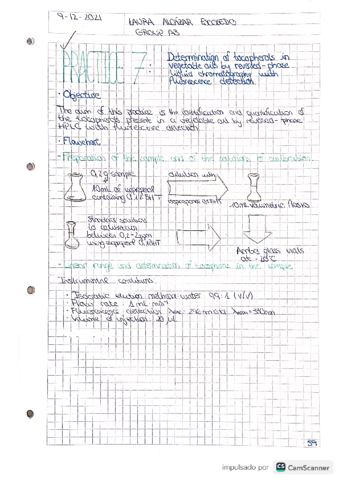 9-12-2021
LAURA ALCÁZAR ESCOBEDO
GROUP A3
PRACTICE 7:
Determination of tocopherols in
vegetable oils by reversed-phase
liquid chromatography with
fluorescence detection.
· Objective
The aim of this practice is the identification and quantification of
the tocopherols present in a vegetable oil by reversed-phase
HPLC with fluorescence detection
· Flowchart
- Preparation of the sample and of the solutions of calibration
0,2g sample
10 mL of isopropanol
containing 0.1% BHT
dilution with
isopropanol 0.1% BHT
10 mL volumetric flasks
Standards solutions
for calibration
between 0,2-2 ppm
using isopropanol 0.1% BHT
Amber glass vials
at -20°C
- Linear range and determination of tocopherols in the sample
Instrumental conditions
· Isocratic elution methanol:water 99:1 (v/v)
· Flow rate 1 mL min⁻¹
· Fluorescence detection
· Volume of injection: 20 µL
59
impulsado por CS CamScanner